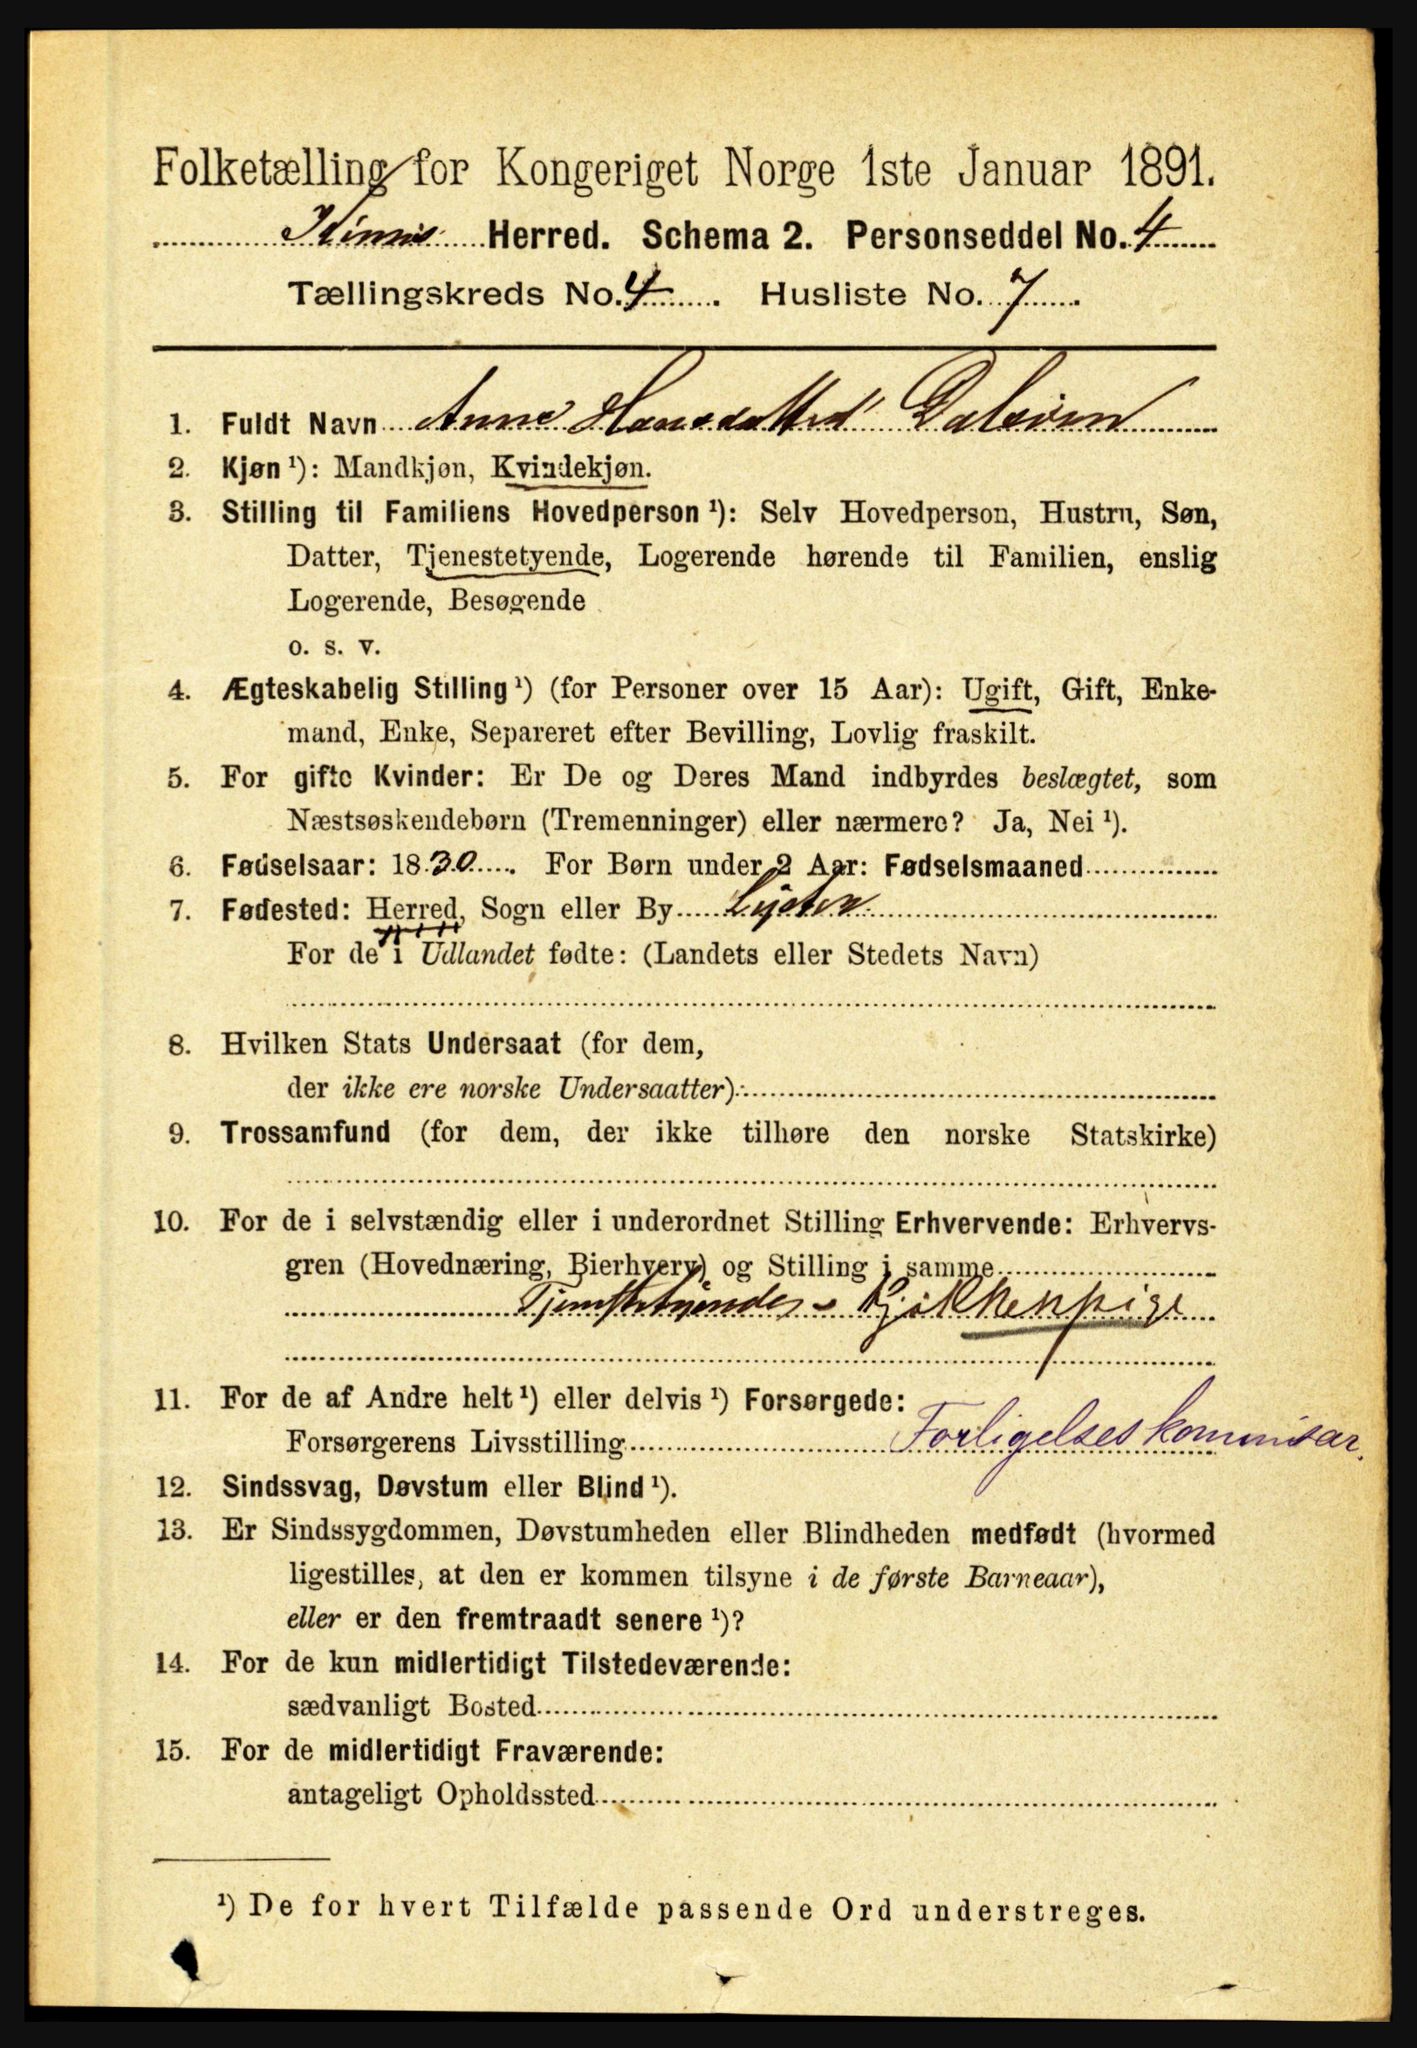 Folketælling for Kongeriget Norge 1ste Januar 1891.
Kinns Herred. Schema 2. Personseddel No. 4
Tællingskreds No. 4. Husliste No. 7.
1. Fuldt Navn Anne Hansdatter Dalsøren
2. Kjøn ¹): Mandkjøn, Kvindekjøn.
3. Stilling til Familiens Hovedperson ¹): Selv Hovedperson, Hustru, Søn,
Datter, Tjenestetyende, Logerende hørende til Familien, enslig
Logerende, Besøgende
o. s. v.
4. Ægteskabelig Stilling ¹) (for Personer over 15 Aar): Ugift, Gift, Enke-
mand, Enke, Separeret efter Bevilling, Lovlig fraskilt.
5. For gifte Kvinder: Er De og Deres Mand indbyrdes beslægtet, som
Næstsøskendebørn (Tremenninger) eller nærmere? Ja, Nei ¹).
6. Fødselsaar: 1830. For Børn under 2 Aar: Fødselsmaaned
7. Fødested: Herred, Sogn eller By Lyster
For de i Udlandet fødte: (Landets eller Stedets Navn)
8. Hvilken Stats Undersaat (for dem,
der ikke ere norske Undersaatter):
9. Trossamfund (for dem, der ikke tilhøre den norske Statskirke)
10. For de i selvstændig eller i underordnet Stilling Erhvervende: Erhvervs-
gren (Hovednæring, Bierhverv) og Stilling i samme
Tjenstetyendes - Kjøkkenpige
11. For de af Andre helt ¹) eller delvis ¹) Forsørgede:
Forsørgerens Livsstilling Forligelseskommisær.
12. Sindssvag, Døvstum eller Blind ¹).
13. Er Sindssygdommen, Døvstumheden eller Blindheden medfødt (hvormed
ligestilles, at den er kommen tilsyne i de første Barneaar),
eller er den fremtraadt senere ¹)?
14. For de kun midlertidigt Tilstedeværende:
sædvanligt Bosted
15. For de midlertidigt Fraværende:
antageligt Opholdssted
¹) De for hvert Tilfælde passende Ord understreges.